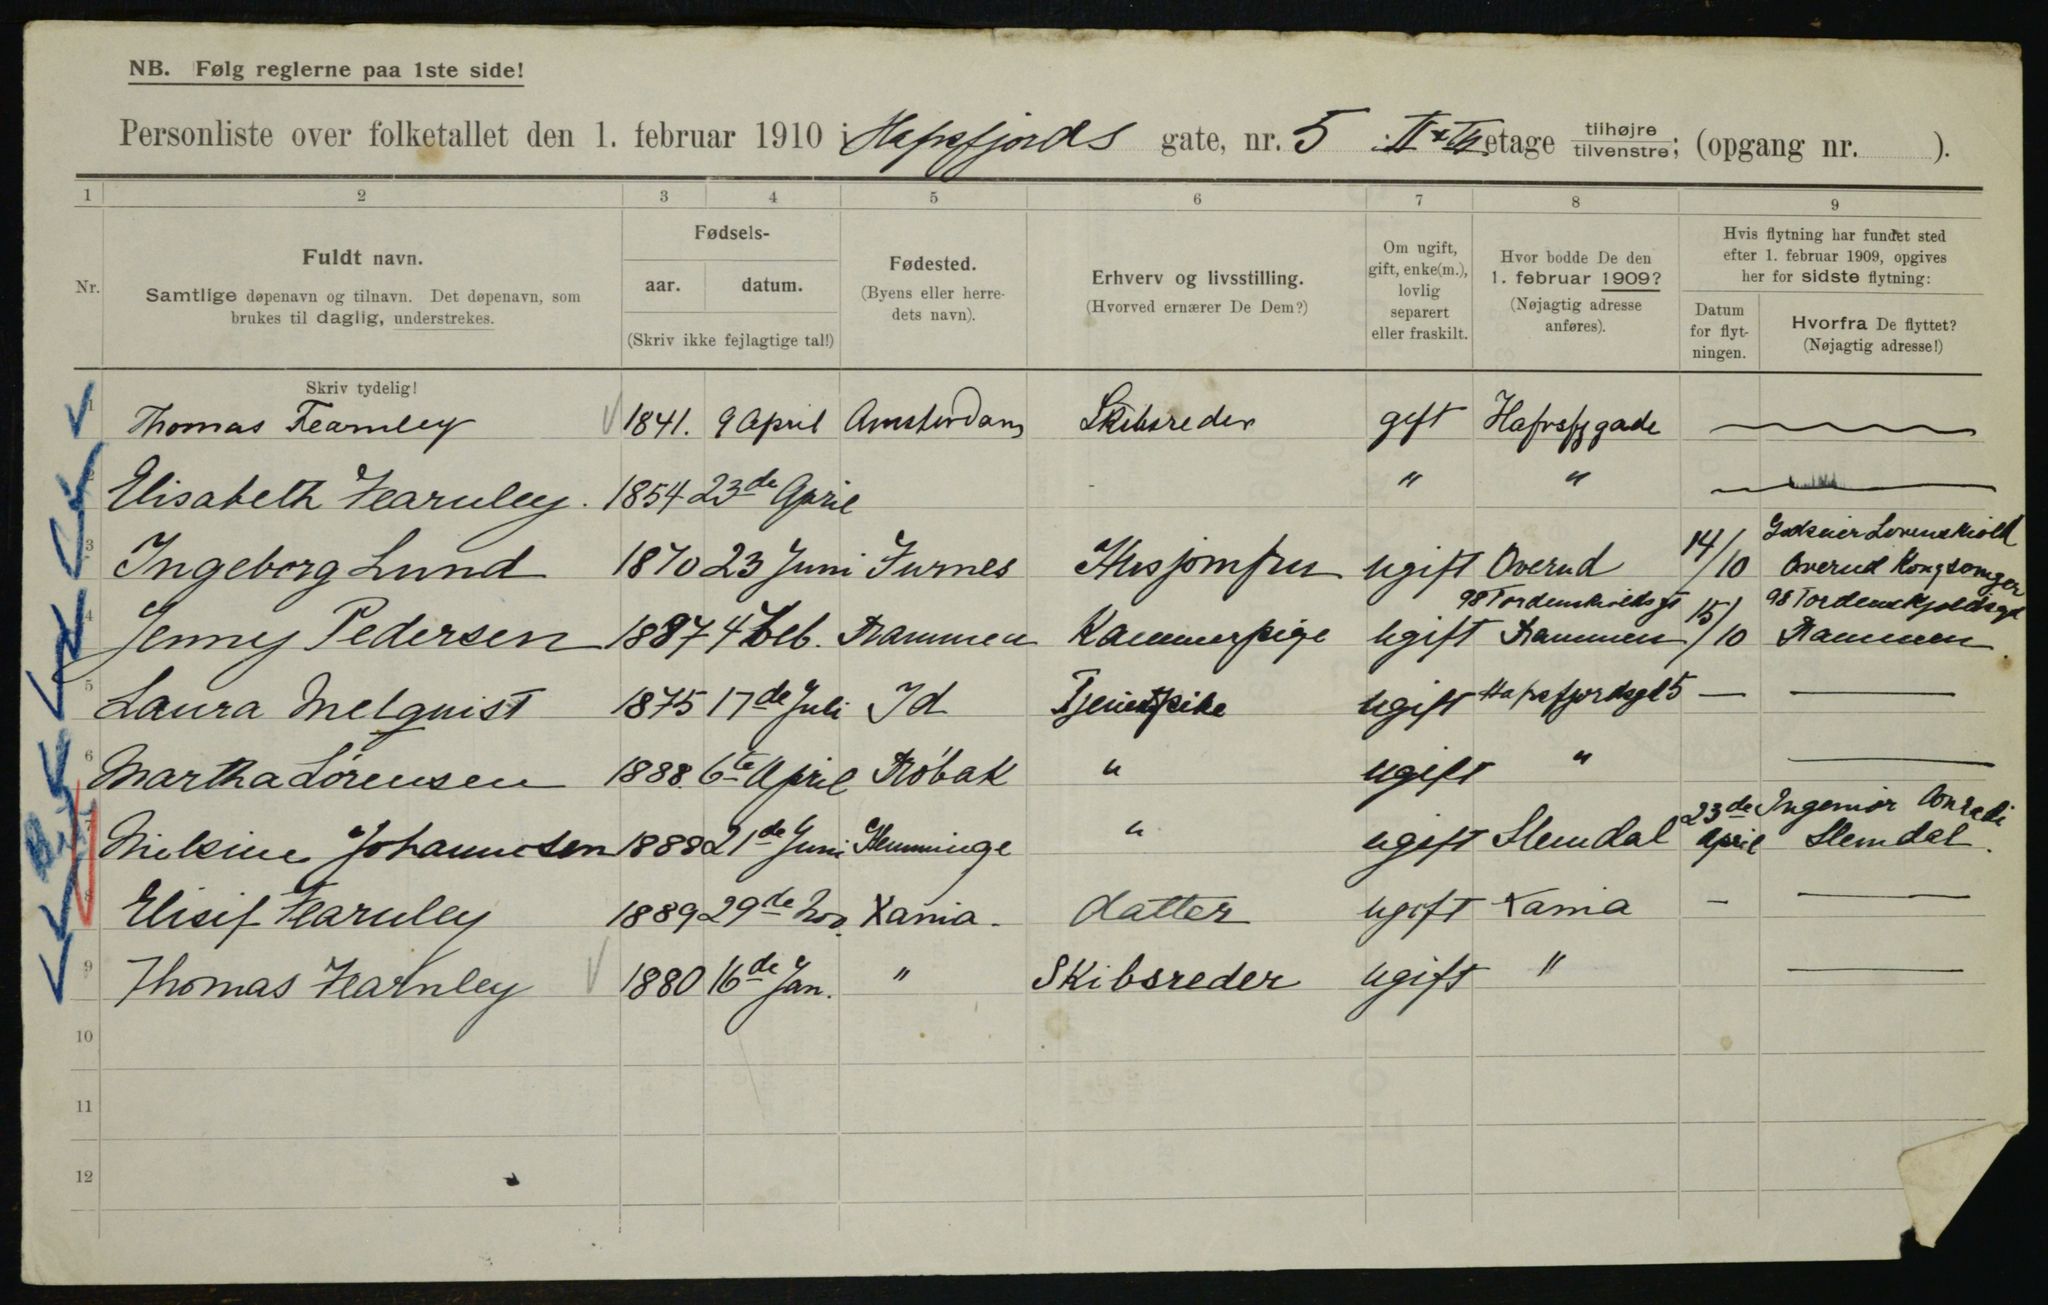 NB. Følg reglerne paa 1ste side!
Personliste over folketallet den 1. februar 1910 i Hafrsfjords gate, nr. 5 II & III etage tilhøjre tilvenstre; (opgang nr. ).
1 2 3 4 5 6 7 8 9
Nr.
Fuldt navn.
Samtlige døpenavn og tilnavn. Det døpenavn, som
brukes til daglig, understrekes.
Skriv tydelig!
Fødsels-
aar. datum.
(Skriv ikke fejlagtige tal!)
Fødested.
(Byens eller herre-
dets navn).
Erhverv og livsstilling.
(Hvorved ernærer De Dem?)
Om ugift,
gift, enke(m.),
lovlig
separert
eller fraskilt.
Hvor bodde De den
1. februar 1909?
(Nøjagtig adresse
anføres).
Hvis flytning har fundet sted
efter 1. februar 1909, opgives
her for sidste flytning:
Datum
for flyt-
ningen.
Hvorfra De flyttet?
(Nøjagtig adresse!)
1 Thomas Fearnley 1841. 9 April Amsterdam Skibsreder gift Hafrsfj gade
2 Elisabeth Fearnley. 1854 23de April " "
3 Ingeborg Lund 1870 23 Juni Furnes Husjomfru ugift Overud 14/10 Godseier Lovenskiold
Overud Kongsvinger
4 Jenny Pedersen 1887 4 Feb. Drammen Kammerpige ugift 98 Tordenskioldsgt Drammen 15/10 98 Tordenskjoldsgd
Drammen
5 Laura Melquist 1875 17de Juli Id Tjenestpike ugift Hafrsfjordsgt 5 —
6 Martha Sørensen 1888. 6te April Drøbak " ugift "
7 Nielsine Johannesen 1888 21de Juni Hemminge " ugift Slemdal 23de April Ingeniør Conradi
Slemdal.
8 Elisif Fearnley 1889 29de Nov. Xania. datter ugift Xania -
9 Thomas Fearnley 1880 16de Jan. " Skibsreder ugift "
10
11
12